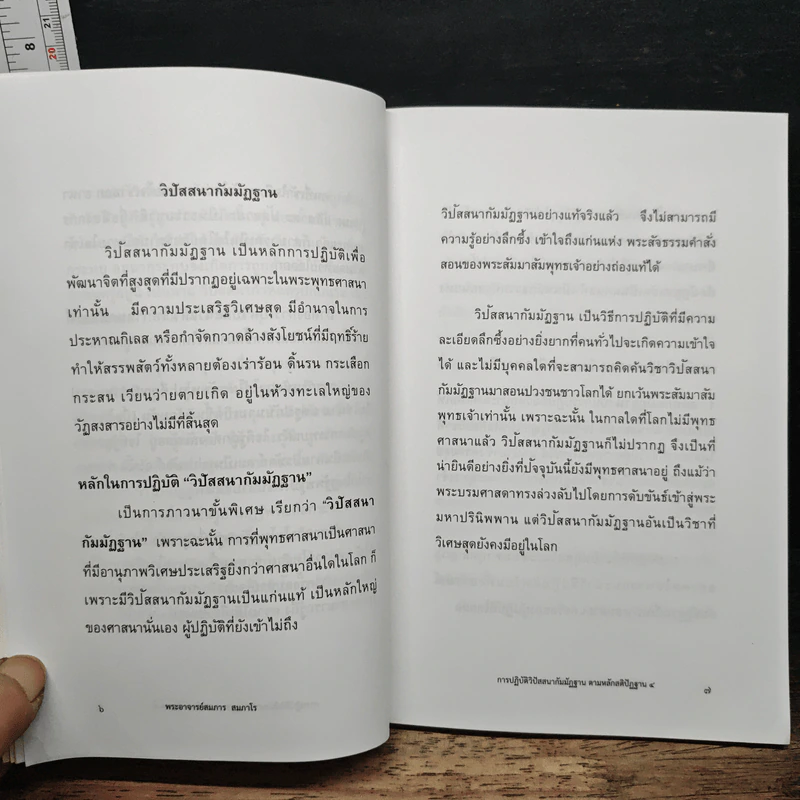 8
20
21
วิปัสสนากัมมัฏฐาน
วิปัสสนากัมมัฏฐาน เป็นหลักการปฏิบัติเพื่อ
พัฒนาจิตที่สูงสุดที่มีปรากฏอยู่เฉพาะในพระพุทธศาสนา
เท่านั้น มีความประเสริฐวิเศษสุด มีอำนาจในการ
ประหาณกิเลส หรือกำจัดกวาดล้างสังโยชน์ที่มีฤทธิ์ร้าย
ทำให้สรรพสัตว์ทั้งหลายต้องเร่าร้อน ดิ้นรน กระเสือก
กระสน เวียนว่ายตายเกิด อยู่ในห้วงทะเลใหญ่ของ
วัฏสงสารอย่างไม่มีที่สิ้นสุด
หลักในการปฏิบัติ “วิปัสสนากัมมัฏฐาน”
เป็นการภาวนาขั้นพิเศษ เรียกว่า “วิปัสสนา
กัมมัฏฐาน” เพราะฉะนั้น การที่พุทธศาสนาเป็นศาสนา
ที่มีอานุภาพวิเศษประเสริฐยิ่งกว่าศาสนาอื่นใดในโลก ก็
เพราะมีวิปัสสนากัมมัฏฐานเป็นแก่นแท้ เป็นหลักใหญ่
ของศาสนานั่นเอง ผู้ปฏิบัติที่ยังเข้าไม่ถึง
๖ พระอาจารย์สมภาร สมภาโร
วิปัสสนากัมมัฏฐานอย่างแท้จริงแล้ว จึงไม่สามารถมี
ความรู้อย่างลึกซึ้ง เข้าใจถึงแก่นแห่ง พระสัจธรรมคำสั่ง
สอนของพระสัมมาสัมพุทธเจ้าอย่างถ่องแท้ได้
วิปัสสนากัมมัฏฐาน เป็นวิธีการปฏิบัติที่มีความ
ละเอียดลึกซึ้งอย่างยิ่งยากที่คนทั่วไปจะเกิดความเข้าใจ
ได้ และไม่มีบุคคลใดที่จะสามารถคิดค้นวิชาวิปัสสนา
กัมมัฏฐานมาสอนปวงชนชาวโลกได้ ยกเว้นพระสัมมาสัม
พุทธเจ้าเท่านั้น เพราะฉะนั้น ในกาลใดที่โลกไม่มีพุทธ
ศาสนาแล้ว วิปัสสนากัมมัฏฐานก็ไม่ปรากฏ จึงเป็นที่
น่ายินดีอย่างยิ่งที่ปัจจุบันนี้ยังมีพุทธศาสนาอยู่ ถึงแม้ว่า
พระบรมศาสดาทรงล่วงลับไปโดยการดับขันธ์เข้าสู่พระ
มหาปรินิพพาน แต่วิปัสสนากัมมัฏฐานอันเป็นวิชาที่
วิเศษสุดยังคงมีอยู่ในโลก
การปฏิบัติวิปัสสนากัมมัฏฐาน ตามหลักสติปัฏฐาน ๔ ๗